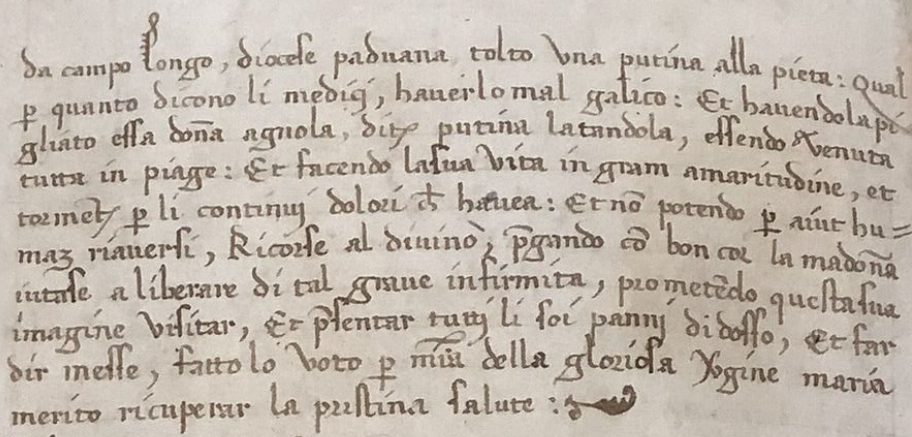 da campo longo, diocese paduana tolto una putina alla pieta: Qual
ꝑ quanto dicono li medici, haverlo mal galico: Et havendola pi
gliato essa doña agnola, ditꝫ putina latandola, essendo venuta
tutta in piage: Et facendo la sua vita in gram amaritudine, et
tormētꝫ ꝑ li continuj dolori ch̄ havea: Et nō potendo ꝑ aiut hu=
maꝫ riaversi, Ricorse al divinò, p̄gando cō bon cor la madoña
iutasse a liberare di tal grave infirmita, prometēdo questa sua
imagine visitar, Et p̄sentar tuttj li soi pannj di dosso, Et far
dir messe, fatto lo voto ꝑ mīa della gloriosa Vgine maria
merito ricuperar la pristina salute: